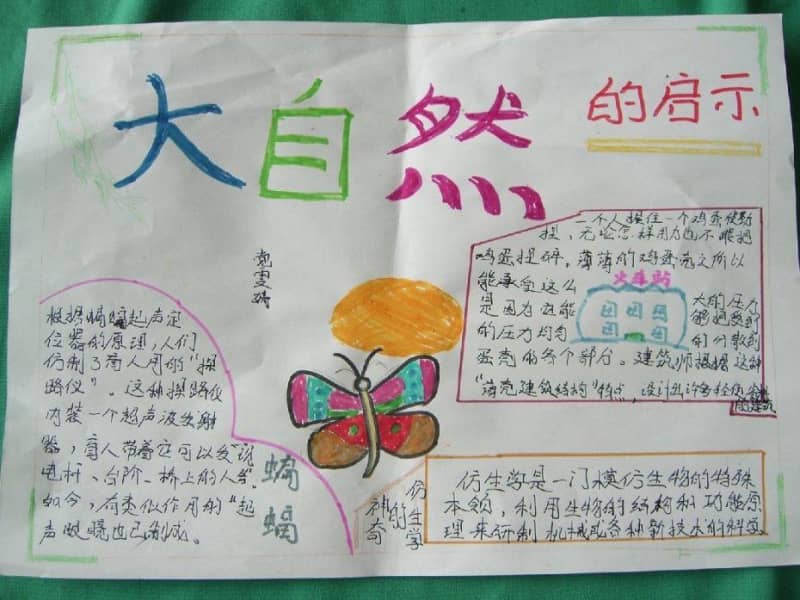 大自然
的启示
一个人握住一个鸡蛋使劲
捏，无论怎样用力也不能把
鸡蛋捏碎。薄薄的鸡蛋壳之所以
能承受这么
大的压力
是因为它能
够把受到
的压力均匀
的分散到
蛋壳的各个部分。建筑师根据这种
“薄壳建筑结构”特点，设计出许多
火车站
根据蝙蝠起声定
位器的原理，人们
仿制了盲人用的“探
路仪”。这种探路仪
内装一个超声波发射
器，盲人带着它可以发现
电杆、台阶、桥上的人等。
如今，有类似作用的“起
声眼镜也已制成。
蝙蝠
神奇的仿生学
仿生学是一门模仿生物的特殊
本领，利用生物的结构和功能原
理来研制机械或各种新技术的科学